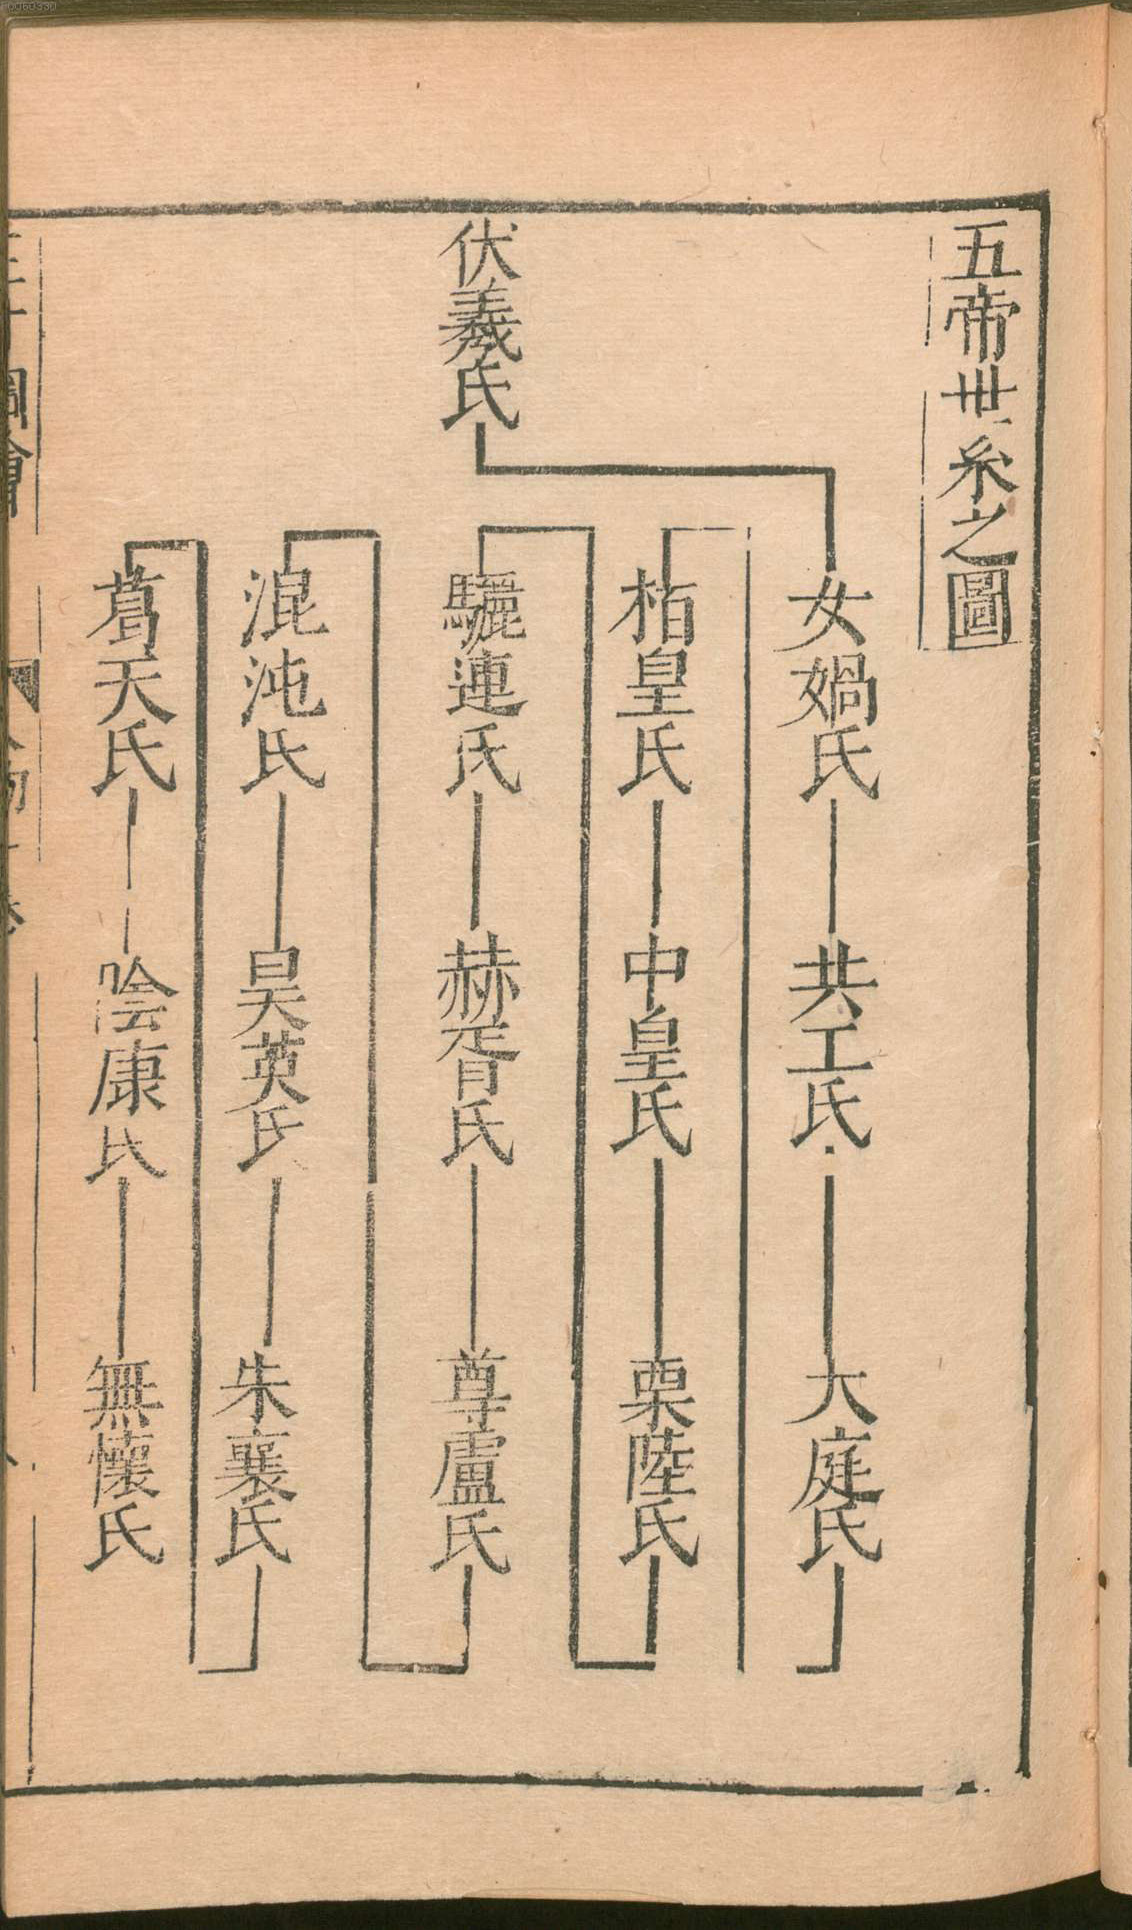 五帝世系之圖
伏羲氏
女媧氏
共工氏
大庭氏
栢皇氏
中皇氏
栗陸氏
驪連氏
赫胥氏
尊盧氏
混沌氏
昊英氏
朱襄氏
葛天氏
陰康氏
無懷氏